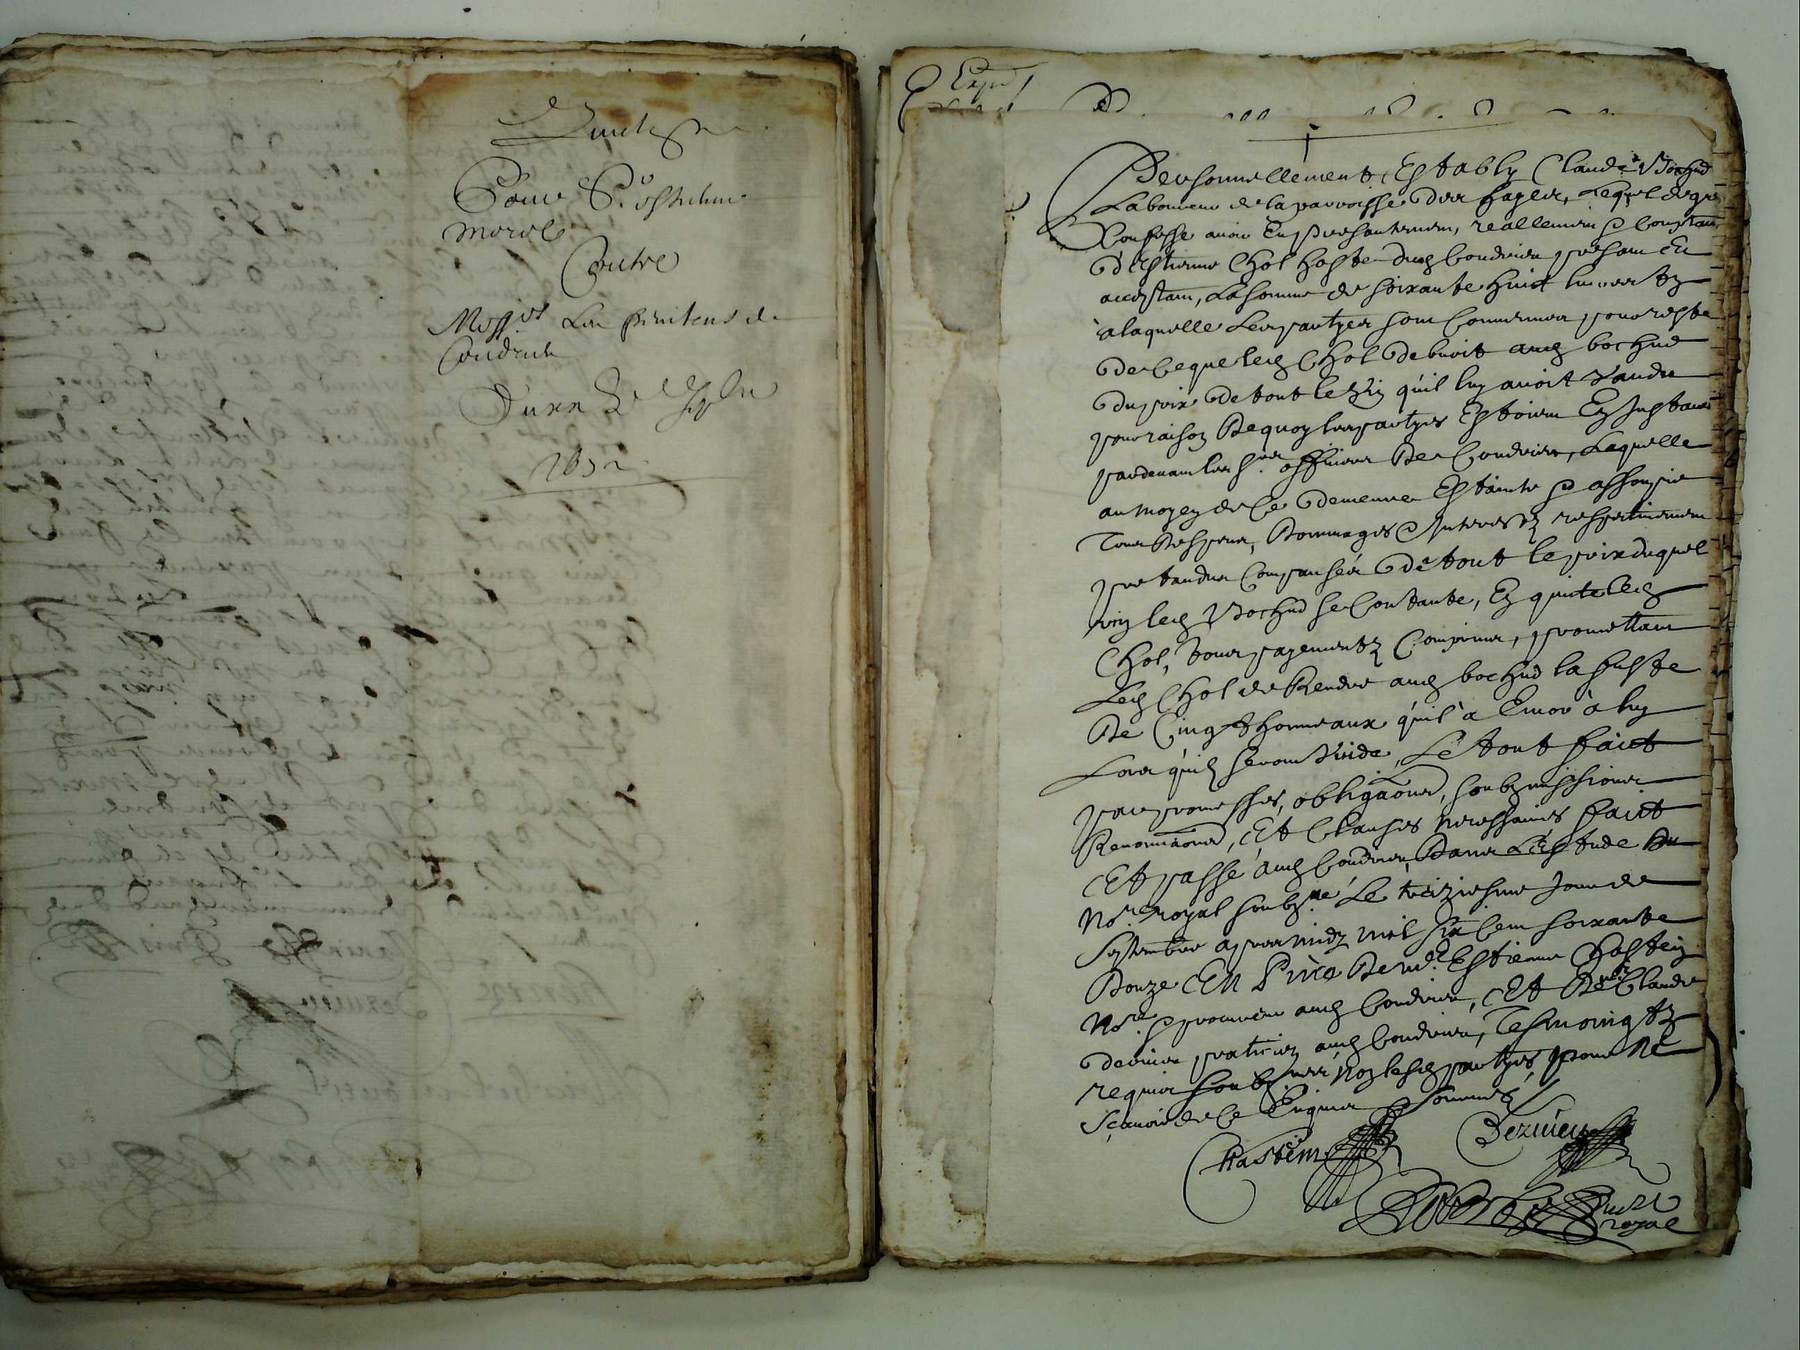 Quictance
Pour Sr Esthienne
Morel
Contre
Messrs Les penitens de
Condrieu
1672
Personnellement Estably Claude Bochud
Laboureur de la parroisse des hayes, Lequel de gré
Confesse avoir Eu presantement, reallement & Contant
d'Estienne Chol hoste dud Condrieu presant Et
acceptant, La somme de soixante huict livres tz
a laquelle Les partyes sont Convenues pour reste
de ce que led Chol debvoit aud bochud
du prix de tout le vin qu'il luy avoit vandu
pour raison de quoy les partyes Estoient En Instance
pardevant les srs officiers de Condrieu, Laquelle
au moyen de ce demeure Estainte & assoupie
Tous despens, dommages & Interestz respectivement
pretandus Compansés de tout le prix duquel
vin led Bochud se Contante, En quicte led
Chol, tous payementz Comprins, promettant
Led Chol de Rendre aud bochud la fuste
de Cinq thonneaux qu'il a Encor à luy
Lors qu'ilz seront vuide, Le tout faict
par promesses, obligaons, soubzmissions
Renonciaons, Et Clauses necessaires faict
Et passé aud Condrieu dans L'estude du
Nore royal soubzné Le treiziesme Jour de
Septembre apres midy mil six Cent soixante
Douze En Pnce de me Estienne Chastein
Nore & procureur aud Condrieu, Et de me Claude
dezuieu praticien aud Condrieu, Tesmoingtz
requis soubznés, Non lesd partyes pour ne
sçavoir de ce Enquis & sommés
Chastein
Dezuieu
royal